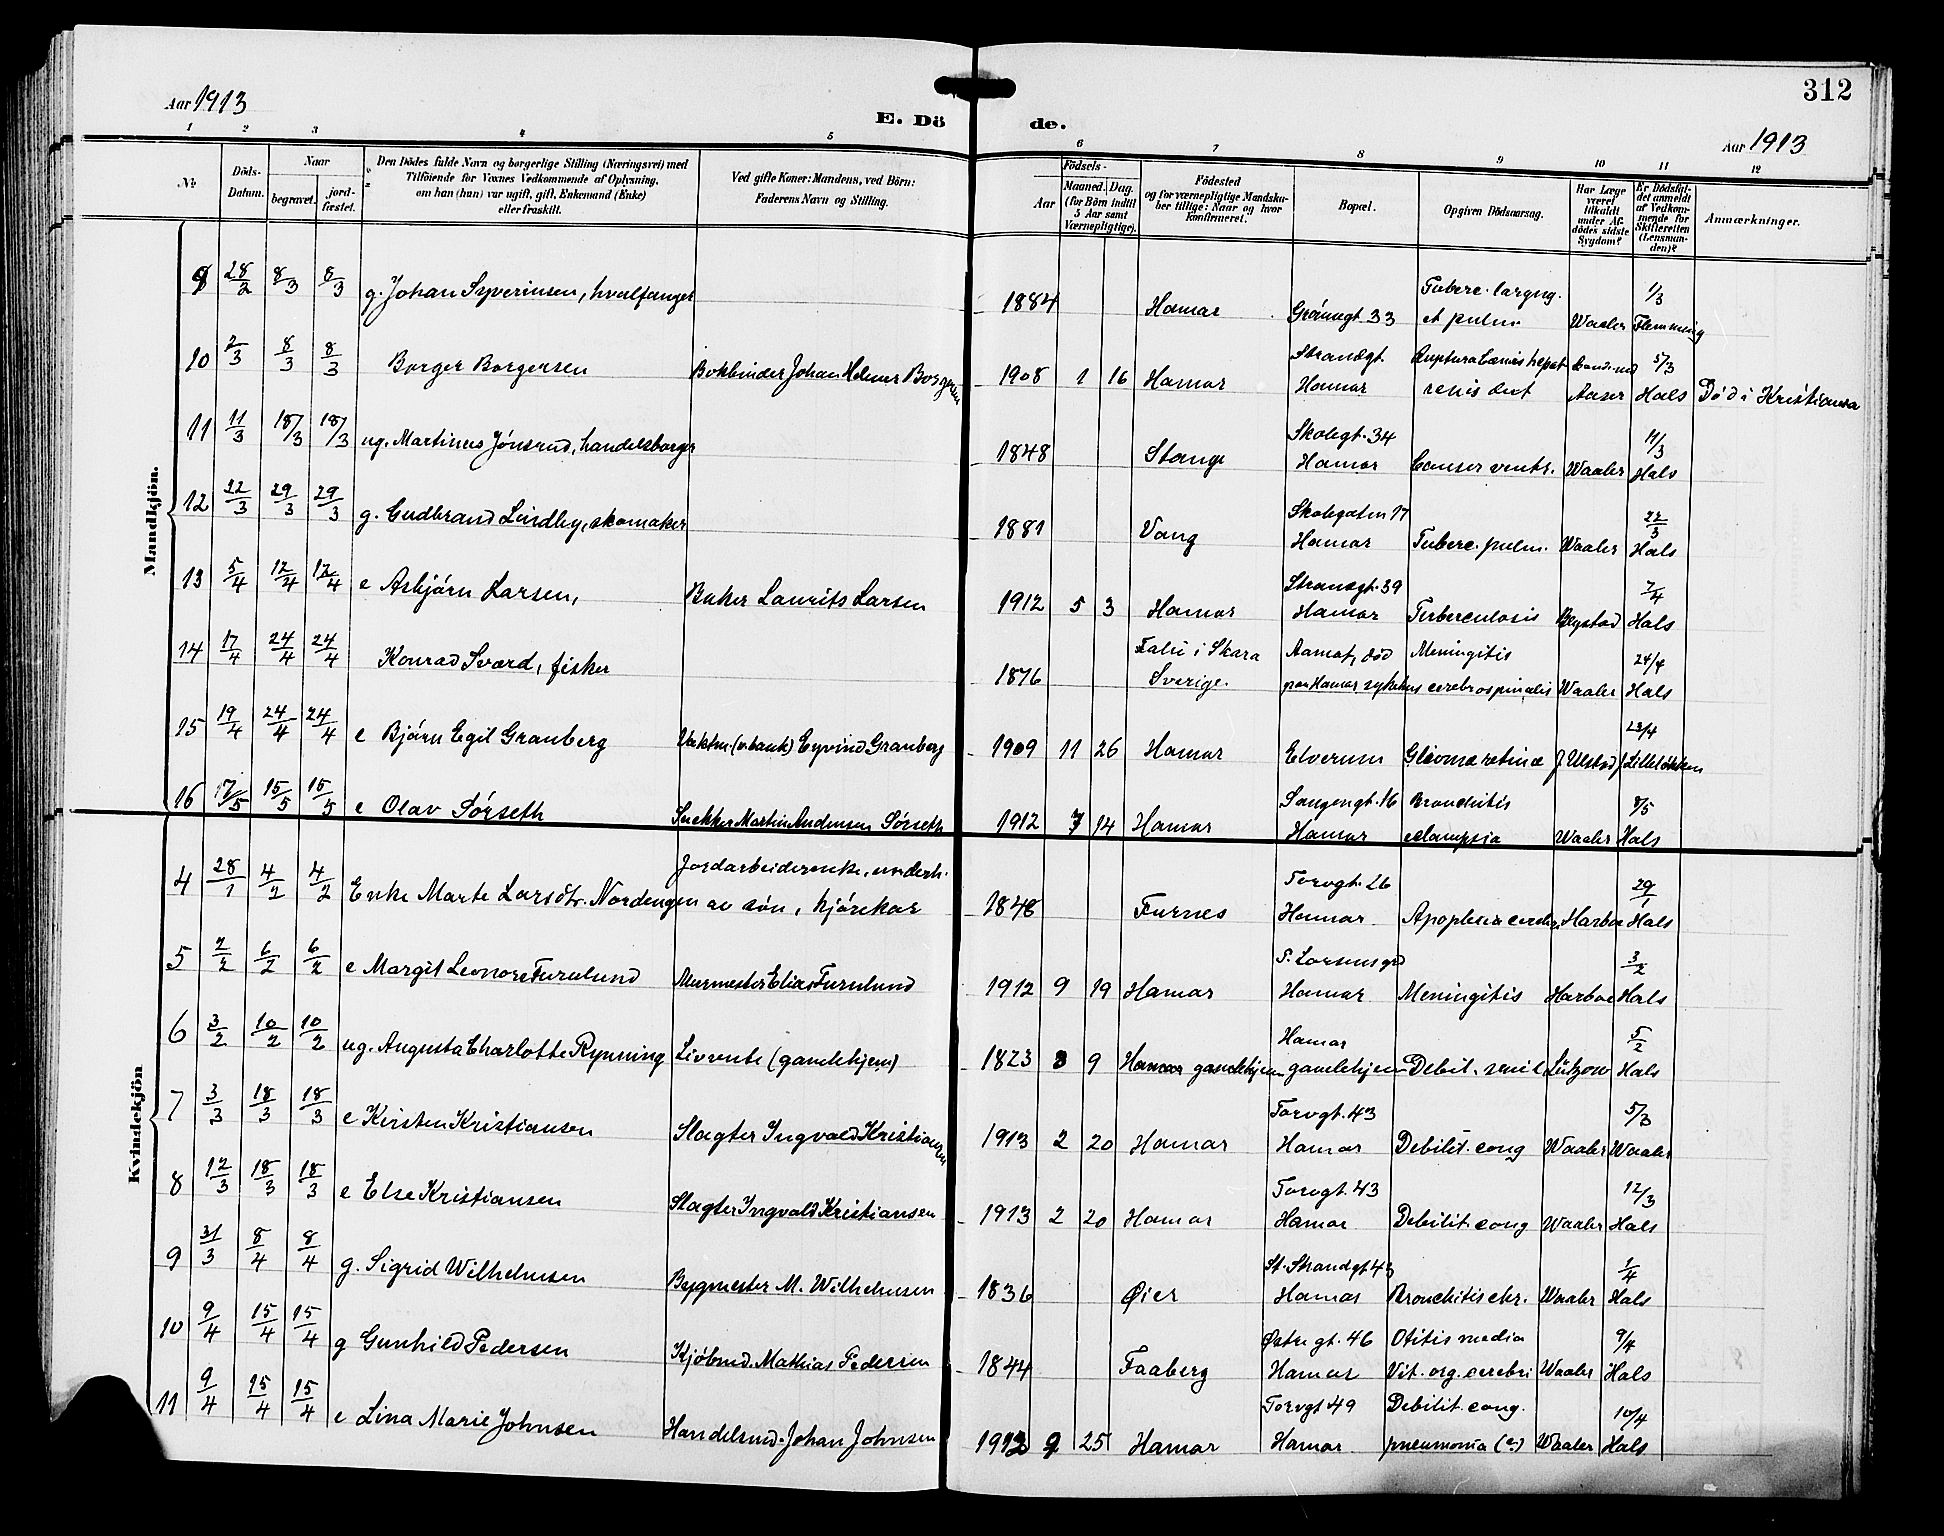 312
Aar 1913
E. Döde.
Aar 1913
1 2 3 4 5 6 7 8 9 10 11 12
№
Döds-Datum.
Naar
begravet.
jordfæstet.
Den Dödes fulde Navn og borgerlige Stilling (Næringsvei) med
Tilföiende for Voxnes Vedkommende af Oplysning,
om han (hun) var ugift, gift, Enkemand (Enke)
eller fraskilt.
Ved gifte Koner: Mandens, ved Börn:
Faderens Navn og Stilling.
Födsels-
Aar
Maaned. Dag.
(for Börn indtil
5 Aar samt
Værnepligtige).
Födested
og for værnepligtige Mandskaber tillige: Naar og hvor
konfirmeret.
Bopæl.
Opgiven Dödsaarsag.
Har Læge
været
tilkaldt
under Afdödes sidste
Sygdom?
Er Dödsfaldet anmeldt
af Vedkommende for
Skifteretten
(Lensmanden)?
Anmærkninger.
Mandkjön.
9 28/2 8/3 8/3 g. Johan Syverinsen, hvalfanger 1884 Hamar Grönnegt. 33 Tuberc. laryng. et pulm. Waaler 1/3 Flemming
10 2/3 8/3 8/3 Borger Borgersen Bokbinder Johan Helmer Borgersen 1908 1 16 Hamar Strandgt. Hamar Ruptura hepat renis dext Aaser 5/3 Hals Död i Kristiania
11 11/3 18/3 18/3 ug. Martinus Jönsrud, handelsborger 1848 Stange Skolegt. 34 Hamar Cancer ventr. Waaler 11/3 Hals
12 22/3 29/3 29/3 g. Gudbrand Lindby, skomaker 1881 Vang Skolegaten 17 Hamar Tuberc. pulm. Waaler 22/3 Hals
13 5/4 12/4 12/4 e Asbjörn Larsen, Baker Laurits Larsen 1912 5 3 Hamar Strandgt. 39 Hamar Tuberculosis Bystad 7/4 Hals
14 17/4 24/4 24/4 Konrad Sværd, fisker 1876 i Skara Sverige. död paa Hamar sykehus Meningitis cerebrospinalis Waaler 24/4 Hals
15 19/4 24/4 24/4 e Björn Egil Granberg Eyvind Granberg 1909 11 26 Hamar Elverum Glioma retinæ J Ulstad 23/4 J Lilleløkken
16 12/5 15/5 15/5 e Olav Sörseth Snekker Martin Andersen Sörseth 1912 7 14 Hamar Sangengt. 16 Hamar Bronchitis eclampsia Waaler 8/5 Hals
Kvindekjön
4 28/1 4/2 4/2 Enke Marte Larsdtr. Nordengen Jordarbeiderenke, underh. av sön, kjörekar 1848 Furnes Torvgt. 26 Hamar Apoplexia cerebri Harboe 29/1 Hals
5 2/2 6/2 6/2 e Margit Leonore Furulund Murmester Elias Furulund 1912 9 19 Hamar P. Larsensgrd Hamar Meningitis Harboe 3/2 Hals
6 3/2 10/2 10/2 ug. Augusta Charlotte Rynning Livrente (gamlehjem) 1823 3 9 Hamar gamlehjem Hamar gamlehjem Debil. senil Lützow 5/2 Hals
7 3/3 18/3 18/3 e Kirsten Kristiansen Slagter Ingvald Kristiansen 1913 2 20 Hamar Torvgt. 43 Hamar Debilit. cong Waaler 5/3 Waaler
8 12/3 18/3 18/3 e Else Kristiansen Slagter Ingvald Kristiansen 1913 2 20 Hamar Torvgt. 43 Hamar Debilit. cong Waaler 12/3 Hals
9 31/3 8/4 8/4 g. Sigrid Wilhelmsen Bygmester M. Wilhelmsen 1836 Øier St. Strandgt 43 Hamar Bronchitis chr. Waaler 1/4 Hals
10 9/4 15/4 15/4 g Gunhild Pedersen Kjöbmd. Mathias Pedersen 1844 Faaberg Østre gt. 46 Hamar Otitis media Vit. org. cerebri Waaler 9/4 Hals
11 9/4 15/4 15/4 e Lina Marie Johnsen Handelsmd. Johan Johnsen 1912 9 25 Hamar Torvgt 49 Hamar Debilit. cong. pneumonia (c.) Waaler 10/4 Hals